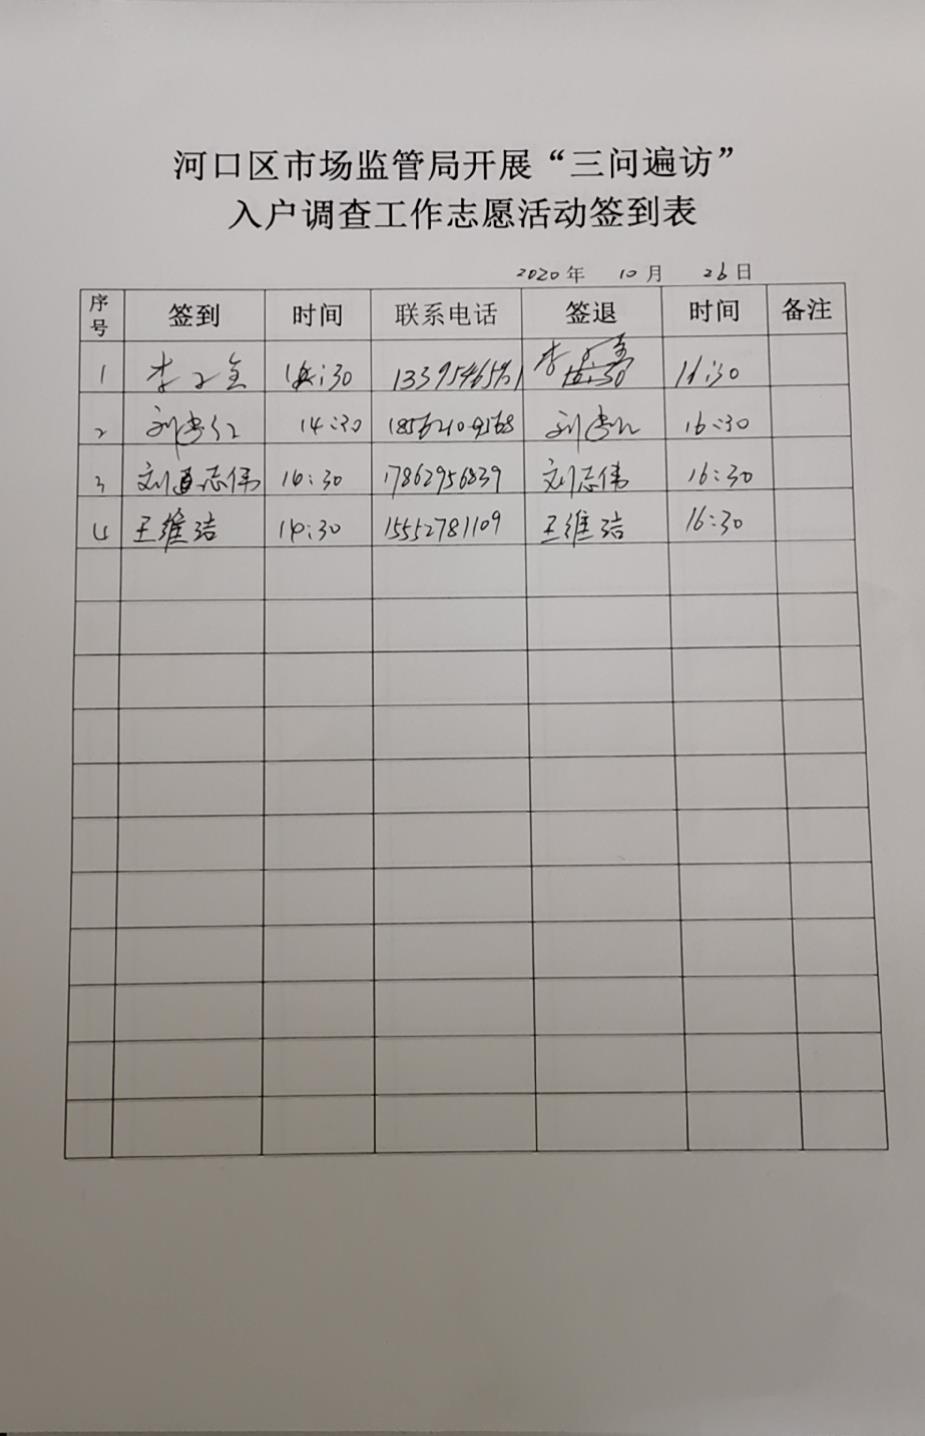 河口区市场监管局开展“三问遍访”
入户调查工作志愿活动签到表
2020年 10月 26日
序号 签到 时间 联系电话 签退 时间 备注
1 李 :30 李 16:30
2 刘 14:30 18562109568 刘 16:30
3 刘志伟 14:30 17862956839 刘志伟 16:30
4 王维洁 14:30 15552781109 王维洁 16:30